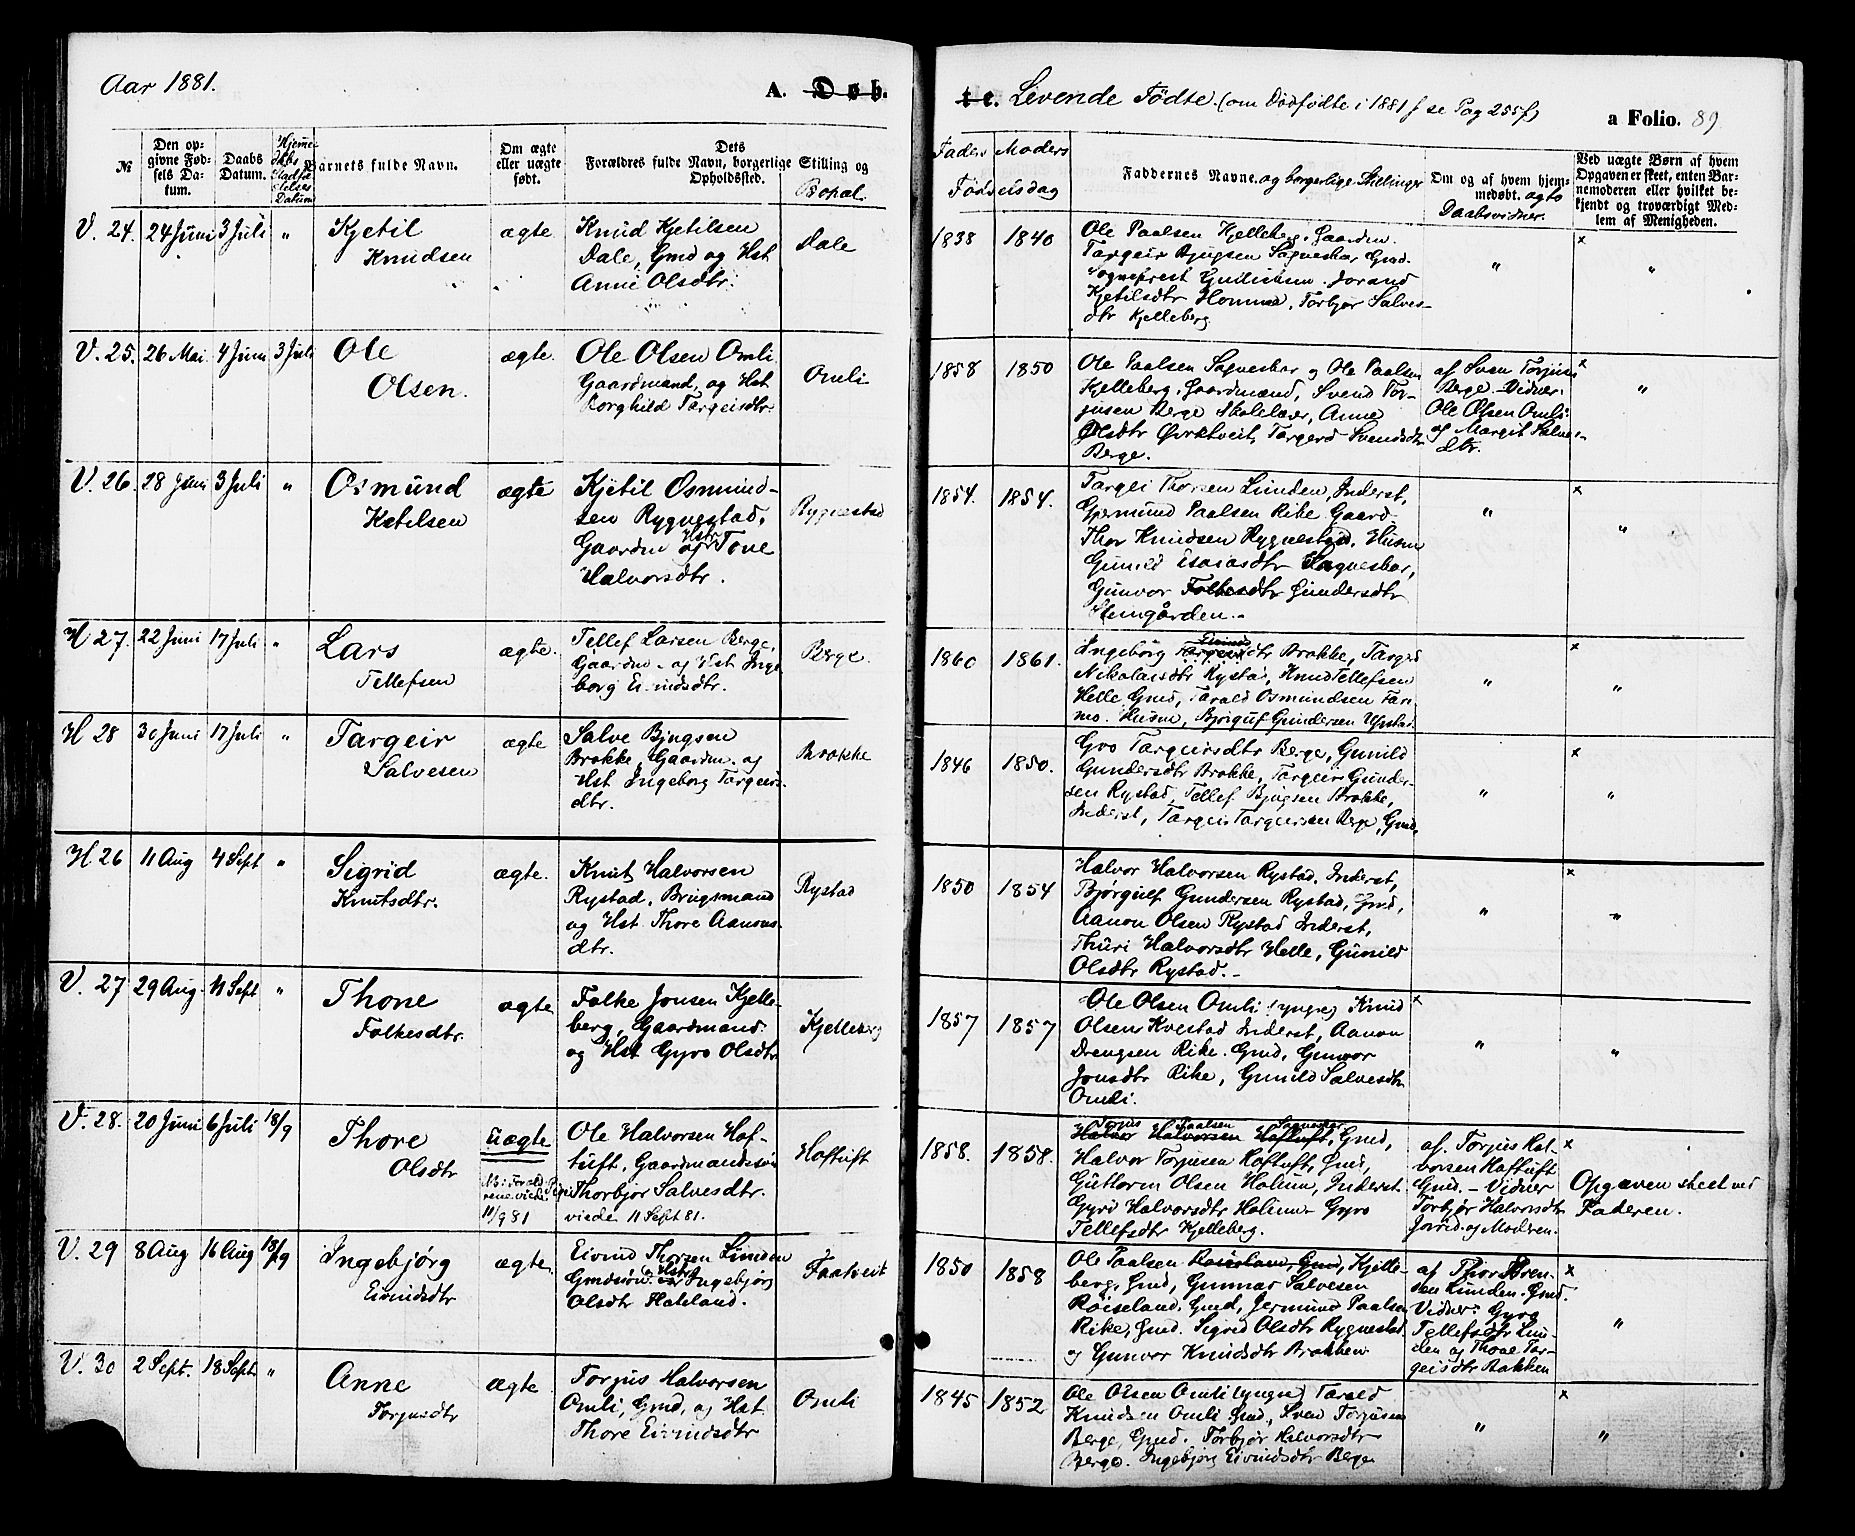 Aar 1881.
A. Døb.
№
Den opgivne Fødsels Datum.
Daabs Datum.
Hjemme Dbs Stadfæstelses Datum
Barnets fulde Navn.
Om ægte eller uægte født.
Dets
Forældres fulde Navn, borgerlige Stilling og
Opholdssted.
Bopæl.
V. 24. 24 Juni 3 Juli " Kjetil
Knudsen
ægte
Knud Kjetilsen
Dale, Gmd og Hst
Anne Olsdtr.
Dale
V. 25. 26 Mai 4 Juni 3 Juli Ole
Olsen.
ægte.
Ole Olsen Omli
Gaardmand, og Hst
Borghild Targeisdtr.
Omli
V. 26. 28 Juni 3 Juli " Osmund
Ketilsen
ægte
Kjetil Osmund-
sen Rygnestad,
Gaardm og Hstr Tone
Halvorsdtr.
Rygnestad
H 27. 22 Juni 17 Juli " Lars
Tellefsen
ægte.
Tellef Larsen Berge,
Gaardm. og Hst Inge
borg Eivindsdtr.
Berge.
H 28 30 Juni 17 Juli " Targeir
Salvesen
ægte
Salve Bjugsen
Brokke, Gaardm. og
Hst Ingeborg Targeirs-
dtr.
Brokke
H 26 11 Aug 4 Sept " Sigrid
Knutsdtr.
ægte.
Knut Halvorsen
Rystad, Brugsmand
og Hst Thore Aanons-
dtr.
Rystad
V. 27 29 Aug. 11 Sept " Thone
Folkesdtr.
ægte.
Folke Jonsen Kjelle-
berg, Gaardmand
og Hst Gyro Olsdtr
Kjelleberg
V. 28. 20 Juni 6 Juli 18/9 Thore
Olsdtr
uægte
11/9 81
Ole Halvorsen Hof-
tuft, Gaardmandssøn
Thorbjør Salvesdtr.
viede 11 Sept 81.
Hoftuft
V. 29 8 Aug 16 Aug 18/9 Ingebjørg
Eivindsdtr
ægte.
Eivind Thorsen Lunden
Gmdsøn og Hstr Ingebjørg
Olsdtr Hateland.
Faatveit
V. 30 2 Sept. 18 Sept " Anne
Torjusdtr
ægte.
Torjus Halvorsen
Omli, Gmd, og Hst
Thore Eivindsdtr
Omli
te. Levende Fødte. (om Dødfødte i 1881 f se Pag 255f)
a Folio. 89
Faders Moders
Fødselsdag
Faddernes Navne og borgerlige Stillinger
Om og af hvem hjemmedøbt. agts
Daabsvidner.
Ved uægte Børn af hvem
Opgaven er skeet, enten Bar-
nemoderen eller hvilket be-
kjendt og troværdigt Med-
lem af Menigheden.
1838 1840
Ole Paalsen Kjelleberg, Gaardm.
Targeir Bjugsen Sagneskar Gmd.
Sogneprest Jorand
Kjetilsdtr Homme, Torbjør Salves-
dtr Kjelleberg
" × "
1858 1850
Ole Paalsen Sagneskar og Ole Paalsen
Kjelleberg, Gaardmænd, Svend Tor-
jusen Berge Skolelærer, Anne
Olsdtr Ørktveit, Targerd Svendsdtr
Berge.
af Sven Torjusen
Berge – Vidner:
Ole Olsen Omli
og Margit Salves-
dtr.
× "
1854. 1854.
Targei Thorsen Lunden, Inderst,
Gjermund Paalsen Rike Gaard
Thor Knudsen Rygnestad. Husm
Gunild Esaiasdtr Sagneskar,
Gunvor Folkesdtr Gundersdtr
Steingården.–
" × "
1860 1861.
Ingeborg Targeirs Eivindsdtr Brokke, Targerd
Nikolaisdtr Rystad, Knud Tellefsen
Helle Gmd, Tarald Osmundsen Far
mo. Husm, Bjørguf Gundersen Upstad.
" × "
1846 1850.
Gro Targeirsdtr Berge, Gunild
Gundersdtr Brokke, Targeir Gunder-
sen Rystad, Tellef Bjugsen Brokke,
Inderst, Targeir Targeirsen Berge, Gmd.
" × "
1850 1854
Halvor Halvorsen Rystad, Inderst,
Bjørgulf Gundersen Rystad, Gmd,
Aanon Olsen Rystad Inderst,
Thuri Halvorsdtr Helle, Gunild
Olsdtr Rystad.–
" × "
1857 1857
Ole Olsen Omli (yngre) Knud
Olsen Kvestad Inderst, Aanon
Drengsen Rike. Gmd, Gunvor
Jonsdtr Rike, Gunild Salvesdtr
Omli.
× " "
1858. 1858.
Torjus Paalsen Sagneskar
Halvor Halvorsen Hoftuft, Gmd,
Halvor Torjusen Hoftuft, Gmd,
Guttorm Olsen Holum, Inderst
Gyro Halvorsdtr Holum – Gyro
Tellefsdtr Kjelleberg.
af Torjus Hal-
vorsen Hoftuft
Gmd. – Vidner
Torbjør Halvorsdtr
Jorid og Moderen.
×
Opgaven skeet ved
Faderen.
1850 1858
Ole Paalsen Røiseland, Gmd, Kjelle-
berg, Gmd, Gunnar Salvesen
Røiseland, Gmd, Jermund Paalsen
Rike, Gmd. Sigrid Olsdtr Rygnestad
og Gunvor Knudsdtr Brokken
af Thor
sen Lunden. Gmd.
Vidner: Gyro
Tellefsdtr Lun-
den og Thone Tar-
geisdtr Bakken
× "
1845 1852
Ole Olsen Omli (yngre) Tarald
Knudsen Omli Gmd, Sven Torjusen
Berge, Gmd. Torbjør Halvorsdtr
Berge. Ingebjørg Eivindsdtr Berge
" × "